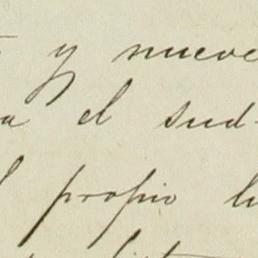 y nueve
a el sud-
l propio lu